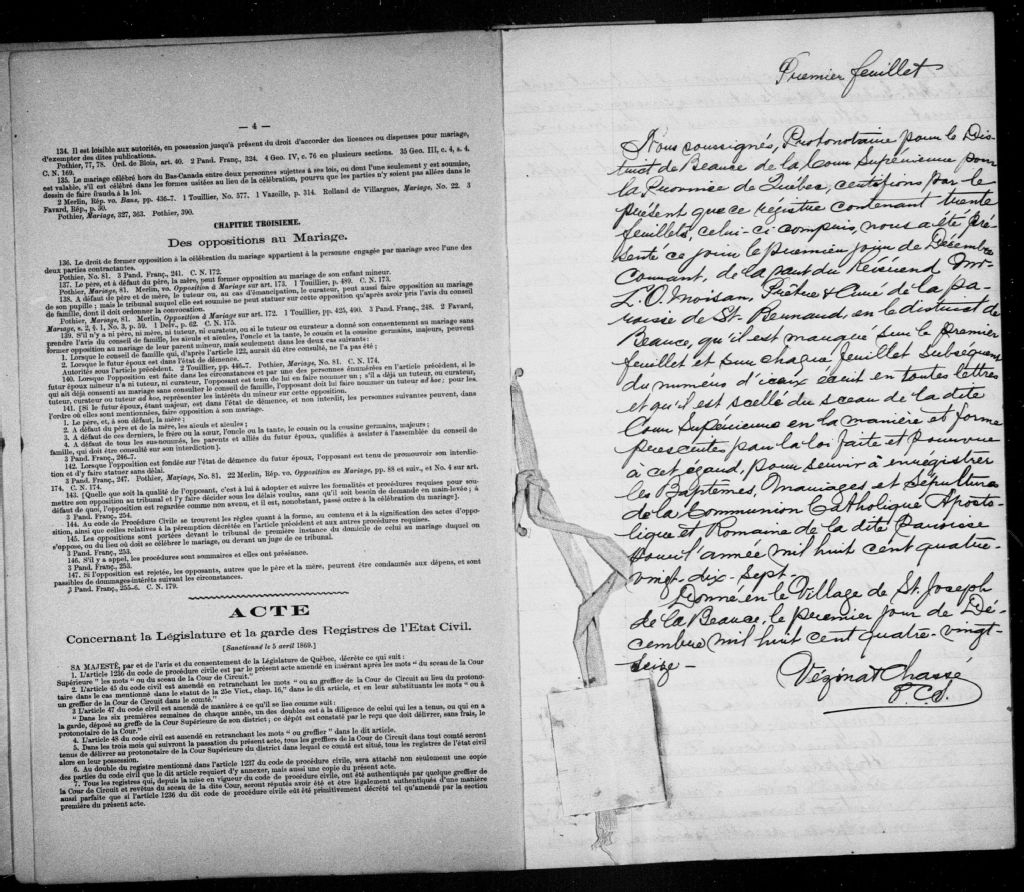 — 4 —
134. Il est loisible aux autorités, en possession jusqu'à présent du droit d'accorder des licences ou dispenses pour mariage,
d'exempter des dites publications.
Pothier, 77, 78. Ord. de Blois, art. 40. 2 Pand. Franç., 324. 4 Geo. IV, c. 76 en plusieurs sections. 35 Geo. III, c. 4, s. 4.
C. N. 169.
135. Le mariage célébré hors du Bas-Canada entre deux personnes sujettes à ses lois, ou dont l'une seulement y est soumise,
est valable, s'il est célébré dans les formes usitées au lieu de la célébration, pourvu que les parties n'y soient pas allées dans le
dessin de faire frauda à la loi.
2 Merlin, Rép. vo. Bans, pp. 436-7. 1 Touillier, No. 577. 1 Vazeille, p. 314. Rolland de Villargues, Mariage, No. 22. 3
Favard, Rép., p. 50.
Pothier, Mariage, 327, 363. Pothier, 390.
CHAPITRE TROISIEME.
Des oppositions au Mariage.
136. Le droit de former opposition à la célébration du mariage appartient à la personne engagée par mariage avec l'une des
deux parties contractantes.
Pothier, No. 81. 3 Pand. Franç., 241. C. N. 172.
137. Le père, et à défaut du père, la mère, peut former opposition au mariage de son enfant mineur.
Pothier, Mariage, 81. Merlin, vo. Opposition à Mariage sur art. 173. 1 Touillier, p. 489. C. N. 173.
138. A défaut de père et de mère, le tuteur ou, au cas d'émancipation, le curateur, peut aussi faire opposition au mariage
de son pupille ; mais le tribunal auquel elle est soumise ne peut statuer sur cette opposition qu'après avoir pris l'avis du conseil
de famille, dont il doit ordonner la convocation.
Pothier, Mariage, 81. Merlin, Opposition à Mariage sur art. 172. 1 Touillier, pp. 425, 490. 3 Pand. Franç., 248. 2 Favard,
Mariage, s. 2, § 1, No. 3, p. 59. 1 Delv., p. 62. C. N. 175.
139. S'il n'y a ni père, ni mère, ni tuteur, ni curateur, ou si le tuteur ou curateur a donné son consentement au mariage sans
prendre l'avis du conseil de famille, les aïeuls et aïeules, l'oncle et la tante, le cousin et la cousine germains, majeurs, peuvent
former opposition au mariage de leur parent mineur, mais seulement dans les deux cas suivants :
1. Lorsque le conseil de famille qui, d'après l'article 122, aurait dû être consulté, ne l'a pas été ;
2. Lorsque le futur époux est dans l'état de démence.
Autorités sous l'article précédent. 2 Touillier, pp. 446-7. Pothier, Mariage, No. 81. C. N. 174.
140. Lorsque l'opposition est faite dans les circonstances et par une des personnes énumérées en l'article précédent, si le
futur époux mineur n'a ni tuteur, ni curateur, l'opposant est tenu de lui en faire nommer un ; s'il a déjà un tuteur, ou curateur,
qui ait déjà consenti au mariage sans consulter le conseil de famille, l'opposant doit lui faire nommer un tuteur ad hoc ; pour les
tuteur, curateur ou tuteur ad hoc, représenter les intérêts du mineur sur cette opposition.
141. [Si le futur époux, étant majeur, est dans l'état de démence, et non interdit, les personnes suivantes peuvent, dans
l'ordre où elles sont mentionnées, faire opposition à son mariage.
1. Le père, et, à son défaut, la mère ;
2. A défaut du père et de la mère, les aïeuls et aïeules ;
3. A défaut de ces derniers, le frère ou la sœur, l'oncle ou la tante, le cousin ou la cousine germains, majeurs ;
4. A défaut de tous les sus-nommés, les parents et alliés du futur époux, qualifiés à assister à l'assemblée du conseil de
famille, qui doit être consulté sur son interdiction].
3 Pand. Franç., 246-7.
142. Lorsque l'opposition est fondée sur l'état de démence du futur époux, l'opposant est tenu de promouvoir son interdic-
tion et d'y faire statuer sans délai.
3 Pand. Franç., 247. Pothier, Mariage, No. 81. 22 Merlin, Rép. vo. Opposition au Mariage, pp. 88 et suiv., et No. 4 sur art.
174. C. N. 174.
143. [Quelle que soit la qualité de l'opposant, c'est à lui à adopter et suivre les formalités et procédures requises pour sou-
mettre son opposition au tribunal et l'y faire décider sous les délais voulus, sans qu'il soit besoin de demande en main-levée ; à
défaut de quoi, l'opposition est regardée comme non avenu, et il est, nonobstant, passé outre à la célébration du mariage].
3 Pand. Franç., 254.
144. Au code de Procédure Civile se trouvent les règles quant à la forme, au contenu et à la signification des actes d'oppo-
sition, ainsi que celles relatives à la péremption décrétée en l'article précédent et aux autres procédures requises.
145. Les oppositions sont portées devant le tribunal de première instance du domicile de celui au mariage duquel on
s'oppose, ou du lieu où doit se célébrer le mariage, ou devant un juge de ce tribunal.
3 Pand. Franç., 253.
146. S'il y a appel, les procédures sont sommaires et elles ont préséance.
3 Pand. Franç., 253.
147. Si l'opposition est rejetée, les opposants, autres que le père et la mère, peuvent être condamnés aux dépens, et sont
passibles de dommages-intérêts suivant les circonstances.
3 Pand. Franç., 255-6. C. N. 179.
ACTE
Concernant la Législature et la garde des Registres de l'Etat Civil.
[Sanctionné le 5 avril 1869.]
SA MAJESTÉ, par et de l'avis et du consentement de la Législature de Québec, décrète ce qui suit :
1. L'article 1236 du code de procédure civile est par le présent acte amendé en insérant après les mots " du sceau de la Cour
Supérieure " les mots " ou du sceau de la Cour de Circuit."
2. L'article 45 du code civil est amendé en retranchant les mots " ou au greffier de la Cour de Circuit au lieu du protono-
taire dans le cas mentionné dans le statut de la 25e Vict., chap. 16," dans le dit article, et en leur substituants les mots " ou à
un greffier de la Cour de Circuit dans le comté."
3 L'article 47 du code civil est amendé de manière à ce qu'il se lise comme suit :
" Dans les six premières semaines de chaque année, un des doubles est à la diligence de celui qui les a tenus, ou qui en a
la garde, déposé au greffe de la Cour Supérieure de son district ; ce dépôt est constaté par le reçu que doit délivrer, sans frais, le
protonotaire de la Cour."
4. L'article 48 du code civil est amendé en retranchant les mots " ou greffier " dans le dit article.
5. Dans les trois mois qui suivront la passation du présent acte, tous les greffiers de la Cour de Circuit dans tout comté seront
tenus de délivrer au protonotaire de la Cour Supérieure du district dans lequel ce comté est situé, tous les registres de l'état civil
alors en leur possession.
6. Au double du registre mentionné dans l'article 1237 du code de procédure civile, sera attaché non seulement une copie
des parties du code civil que le dit article requiert d'y annexer, mais aussi une copie du présent acte.
7. Tous les registres qui, depuis la mise en vigueur du code de procédure civile, ont été authentiqués par quelque greffier de
la Cour de Circuit et revêtus du sceau de la dite Cour, seront réputés avoir été et être légalement authentiqués d'une manière
aussi parfaite que si l'article 1236 du dit code de procédure civile eût été primitivement décrété tel qu'amendé par la section
première du présent acte.
Premier feuillet
Nous soussignés, Protonotaire pour le Dis-
trict de Beauce de la Cour Supérieure pour
la Province de Québec, certifions par le
présent que ce régistre contenant trente
feuillets, celui-ci compris, nous a été pré-
senté ce jour le premier jour de Décembre
Courant, de la part du Révérend Mr
L. O. Moisan, Prêtre & Curé de la pa-
roisse de St. Bernard, en le district de
Beauce, qu'il est marqué sur le premier
feuillet et sur chaque feuillet subséquent
du numéro d'iceux écrit en toutes lettres
et qu'il est scellé du sceau de la dite
Cour Supérieure en la manière et forme
prescrites par la loi faite et pourvue
à cet égard, pour servir à enrégistrer
les Baptêmes, Mariages et Sépultures
de la Communion Catholique Aposto-
lique et Romaine de la dite Paroisse
pour l'année mil huit cent quatre-
vingt-dix-sept.-
Donné en le Village de St. Joseph
de la Beauce, le premier jour de Dé-
cembre mil huit cent quatre-vingt-
seize-
Vézina & Chassé
P.C.S.